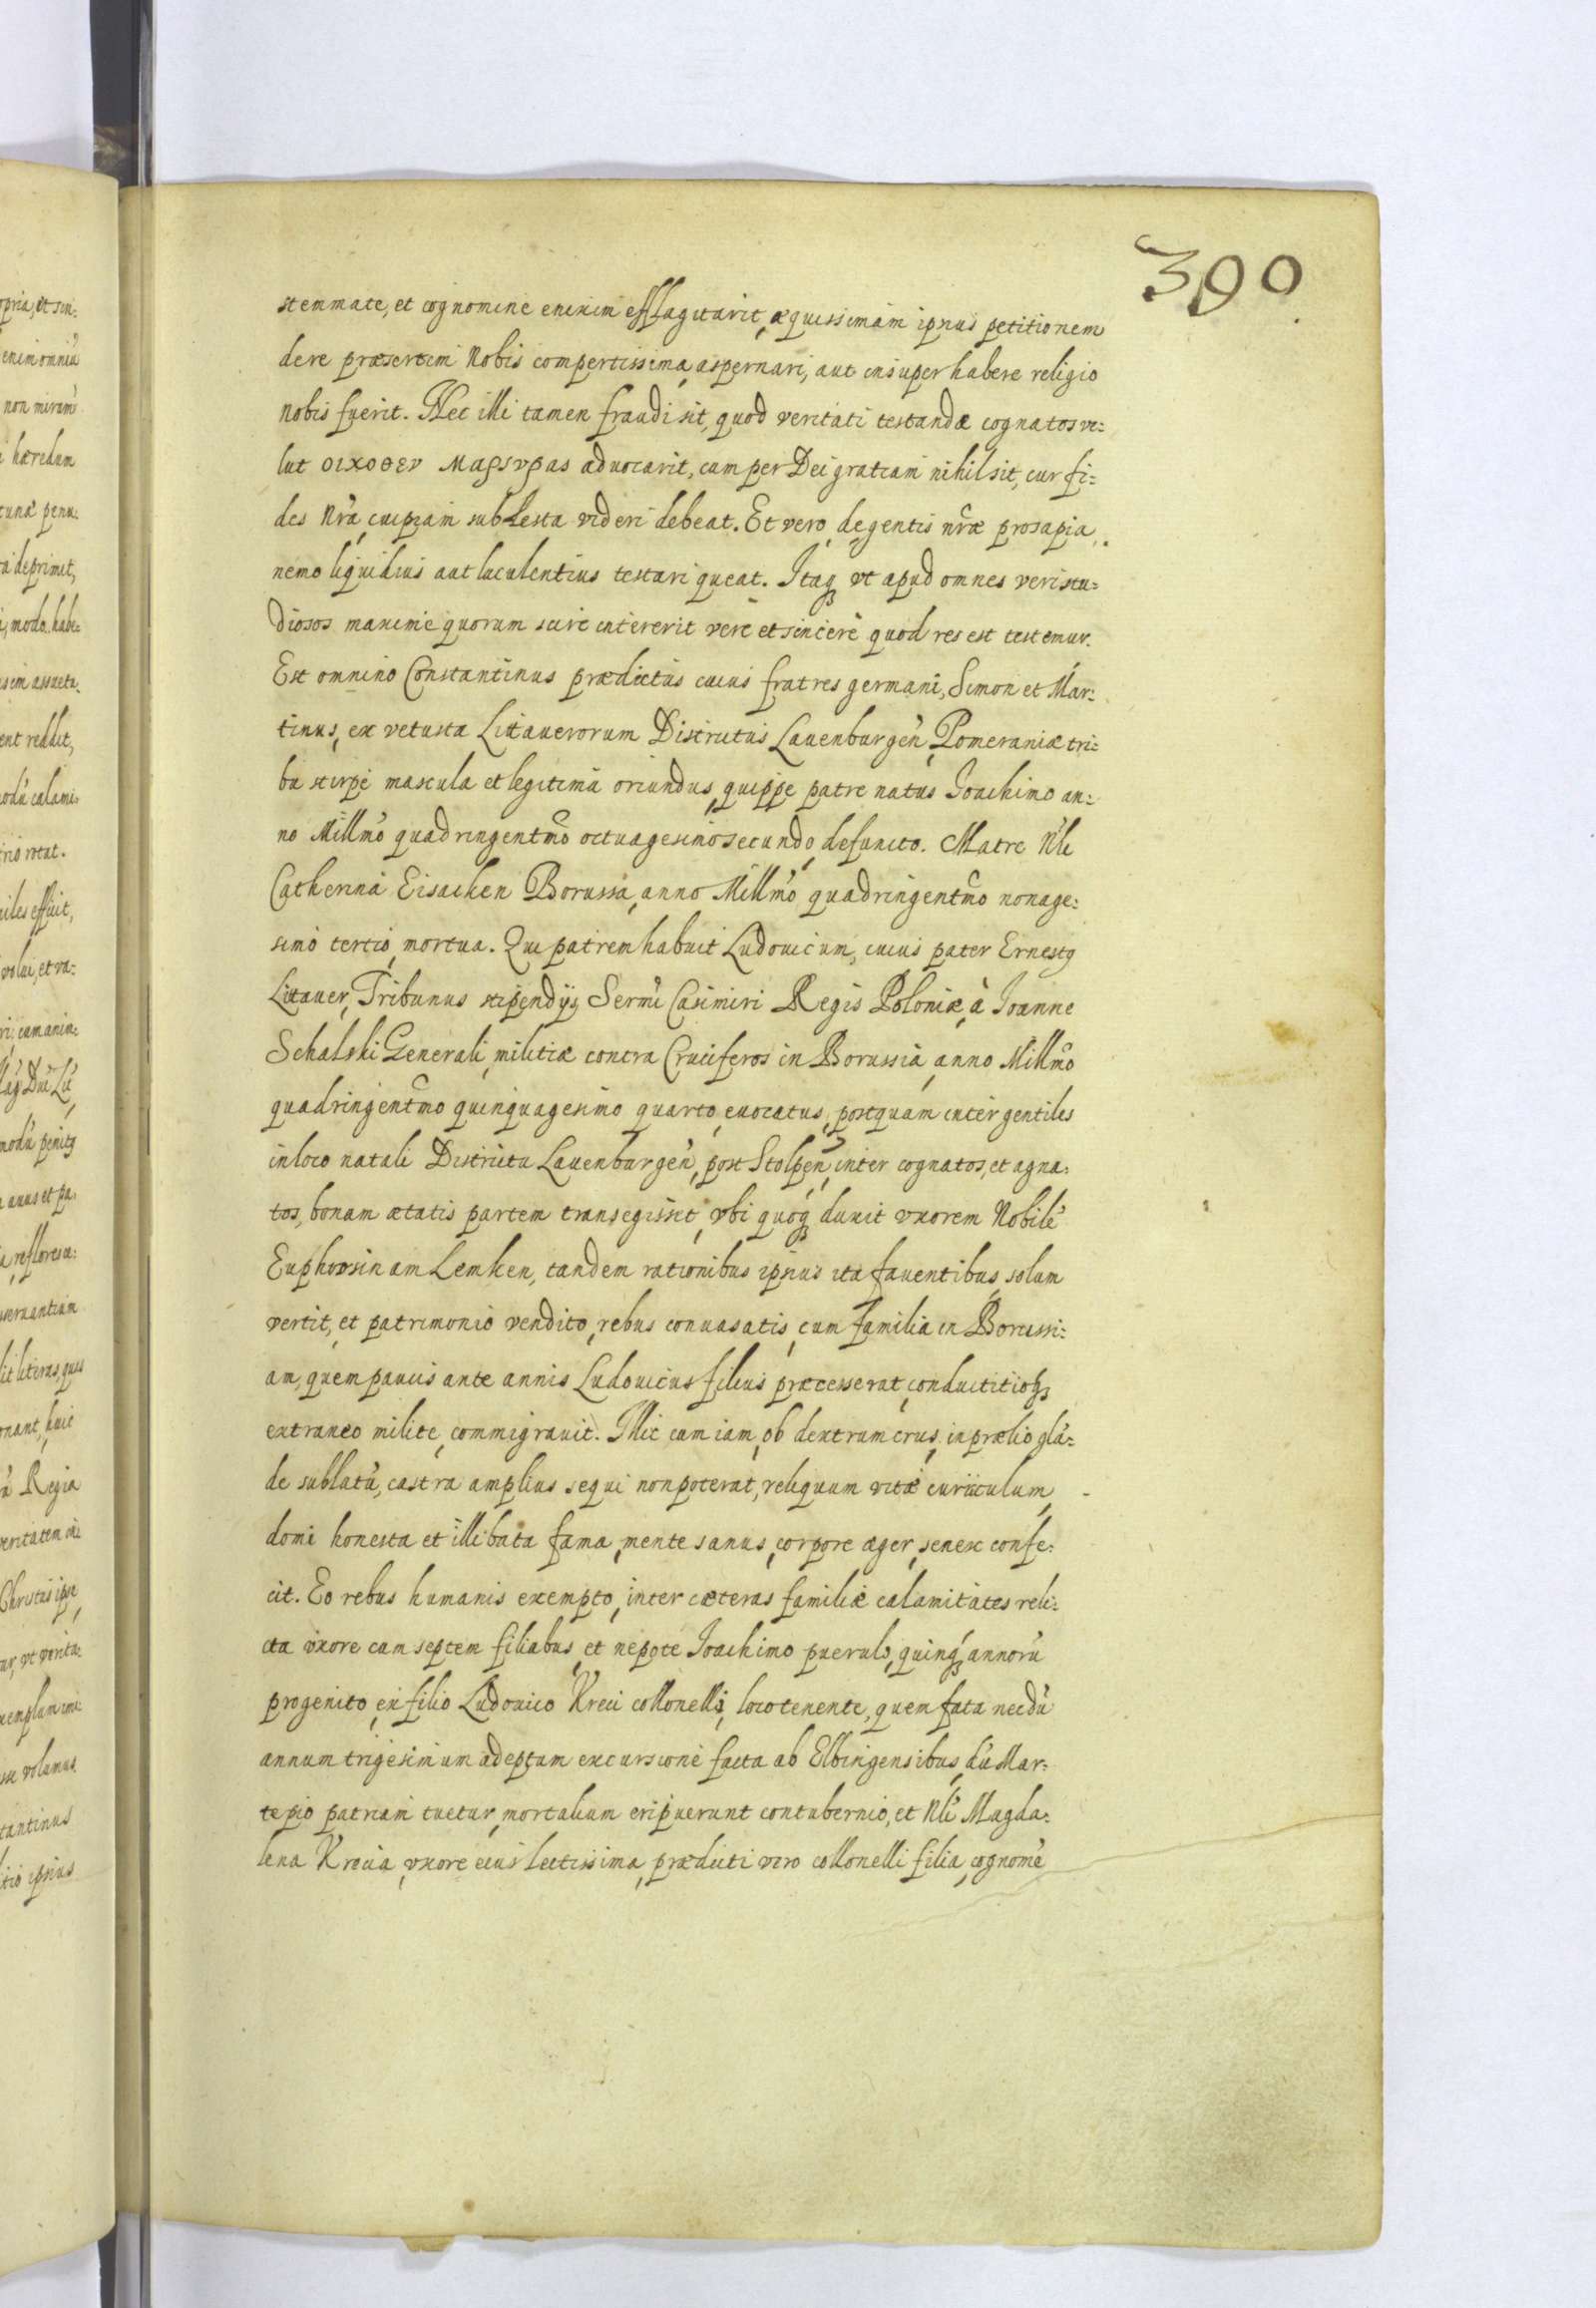 390
stemmate, et cognomine enixim efflagitarit, æquissimam ipsius petitionem
de re præsertim nobis compertissima, aspernari, aut insuper habere religio
nobis fuerit. Nec illi tamen fraudi sit, quod veritati testandæ cognatos ve:
lut οικοθεν μαρτυρας advocarit, cum per Dei gratiam nihil sit, cur fi:
des nr̃a, cuipiam sublesta videri debeat. Et vero, de gentis nr̃æ prosapia,
nemo liquidius aut luculentius testari queat. Itaq; vt apud omnes veri stu:
diosos maxime quorum scire intererit vere et sincere quod res est testemur.
Est omnino Constantinus prædictus cuius fratres germani, Simon et Mar:
tinus, ex vetusta Litaverorum Districtus Lauenburgeñ, Pomeraniæ tri:
bu stirpe mascula et legitima oriundus, quippe patre natus Ioachimo an:
no Millm̃o quadringentm̃o octuagesimo secundo, defuncto. Matre Nl̃i
Catherina Eisacken Borussa, anno Millm̃o quadringentm̃o nonage:
simo tertio, mortua. Qui patrem habuit Ludouicum, cuius pater Ernestꝯ
Litauer, Tribunus stipendijs Serm̃i Casimiri Regis Poloniæ, à Ioanne
Schalski Generali, militiæ contra Cruciferos in Borussia, anno Millm̃o
quadringentm̃o quinquagesimo quarto, euocatus, postquam inter gentiles
in loco natali Districtu Lauenburgeñ, post Stolpeñ, inter cognatos, et agna:
tos, bonam ætatis partem transegisset, vbi quoq; duxit vxorem Nobilẽ
Euphrosinam Lemken, tandem rationibus ipsius ita fauentibus, solum
vertit, et patrimonio vendito, rebus conuasatis, cum familia in Borussi:
am, quem paucis ante annis Ludouicus filius præcesserat, conductitioq;
extraneo milite, commigrauit. Illic cum iam, ob dextrum crus, in prælio glã:
de sublatũ, castra amplius sequi non poterat, reliquum vitæ curriculum,
domi honesta et illibata fama, mente sanus, corpore æger, senex confe:
cit. Eo rebus humanis exempto, inter cæteras familiæ calamitates reli:
cta vxore cum septem filiabus, et nepote Ioachimo puerulo, quinq; annorũ
progenito, ex filio Ludouico Kreci collonelli, locotenente, quem fata necdũ
annum trigesimum adeptum excursione facta ab Elbingensibus, dũ Mar:
te pio patriam tuetur, mortalium eripuerunt contubernio, et Nl̃i Magda:
lena Krecia, vxore eius lectissima, prædicti vero collonelli filia, cognomẽ